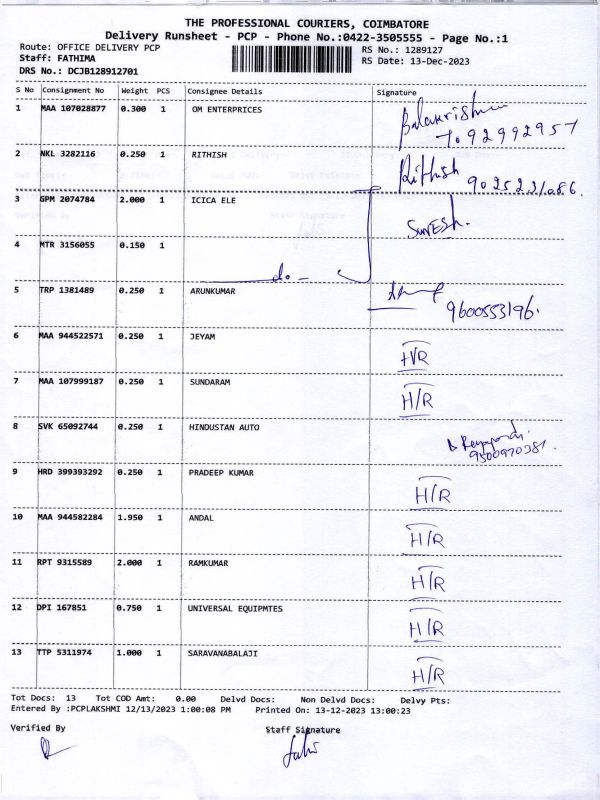 THE PROFESSIONAL COURIERS, COIMBATORE
Delivery Runsheet - PCP - Phone No.:0422-3505555 - Page No.:1
Route: OFFICE DELIVERY PCP
RS No.: 1289127
Staff: FATHIMA
RS Date: 13-Dec-2023
DRS No.: DCJB128912701
S No Consignment No Weight PCS Consignee Details Signature
1 MAA 107028877 0.300 1 OM ENTERPRICES Balakrishna
7092992957
2 NKL 3282116 0.250 1 RITHISH Rithish 9025231086.
3 GPM 2074784 2.000 1 ICICA ELE SURESH.
4 MTR 3156055 0.150 1 do -
5 TRP 1381489 0.250 1 ARUNKUMAR
9600553196.
6 MAA 944522571 0.250 1 JEYAM H/R
7 MAA 107999187 0.250 1 SUNDARAM H/R
8 SVK 65092744 0.250 1 HINDUSTAN AUTO
9500970381.
9 HRD 399393292 0.250 1 PRADEEP KUMAR H/R
10 MAA 944582284 1.950 1 ANDAL H/R
11 RPT 9315589 2.000 1 RAMKUMAR H/R
12 DPI 167851 0.750 1 UNIVERSAL EQUIPMTES H/R
13 TTP 5311974 1.000 1 SARAVANABALAJI H/R
Tot Docs: 13 Tot COD Amt: 0.00 Delvd Docs: Non Delvd Docs: Delvy Pts:
Entered By :PCPLAKSHMI 12/13/2023 1:00:08 PM Printed On: 13-12-2023 13:00:23
Verified By Staff Signature